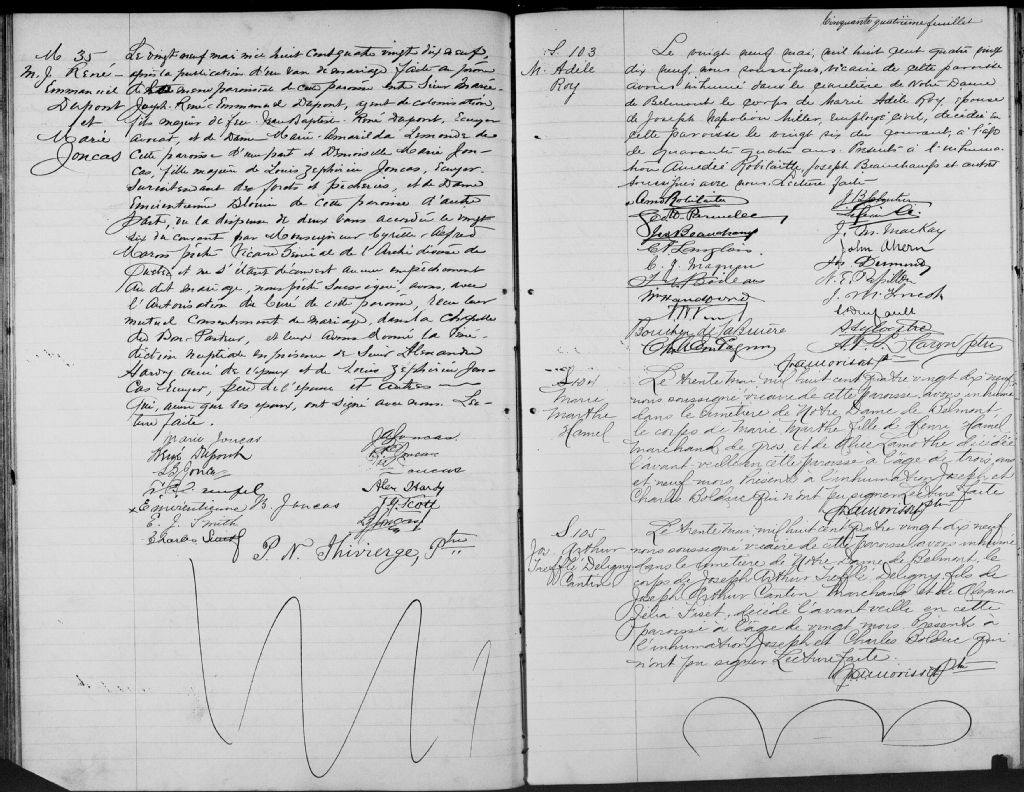 M 35
M. J. René-
Emmanuel
Dupont
et
Marie
Joncas
Le vingt neuf mai mil huit cent quatre vingt dix neuf,
après la publication d'un ban de mariage faite au prône
de la messe paroissiale de cette paroisse entre Sieur Marie
Joseph René Emmanuel Dupont, agent de colonisation,
fils majeur de feu Jean Baptiste René Dupont, Ecuyer
Avocat, et de Dame Marie Amarilda Lemonde de
cette paroisse d'une part et Demoiselle Marie Jon-
cas, fille majeure de Louis Zéphirin Joncas, Ecuyer
Surintendant des forêts et pêcheries, et de Dame
Emérentienne Blouin de cette paroisse d'autre
part, vu la dispense de deux bans accordée le vingt
six du courant par Monseigneur Cyrille Alfred
Marois prêtre Vicaire Général de l'Archidiocèse de
Québec et ne s'étant découvert aucun empêchement
au dit mariage, nous prêtre soussigné, avons, avec
l'autorisation du Curé de cette paroisse, reçu leur
mutuel consentement de mariage, dans la chapelle
du Bon-Pasteur, et leur avons donné la béné-
diction nuptiale en présence de Sieur Alexandre
Hardy ami de l'époux et de Louis Zéphirin Jon-
cas Ecuyer, père de l'épouse et autres
qui, ainsi que les époux, ont signé avec nous. Lec-
ture faite.
Marie Joncas
René Dupont
Joncas
Joncas
Joncas
Alex Hardy
Emérentienne B. Joncas
T. H. Scott
E. J. Smith
Joncas
Charles
P. N. Thivierge, Ptre
Cinquante quatrième feuillet
S. 103
M. Adèle
Roy
Le vingt neuf mai, mil huit cent quatre vingt
dix neuf, nous soussigné, vicaire de cette paroisse
avons inhumé dans le cimetière de Notre Dame
de Belmont le corps de Marie Adèle Roy, épouse
de Joseph Napoléon Miller, employé civil, décédée en
cette paroisse le vingt six du courant, à l'âge
de quarante quatre ans. Présents à l'inhuma-
tion Amédée Robitaille, Joseph Beauchamp et autres
soussignés avec nous. Lecture faite
Amd Robitaille
Parmelee
Jos Beauchamp
J. M. Mackay
Langlais
John Ahern
C. J. Magnan
Jos Desmond
Boileau
N. E. Papillon
Boucher de LaBruère
Sylvestre
Caron Ptre
Morisset ptre
S 104
Marie
Marthe
Hamel
Le trente mai, mil huit cent quatre vingt dix neuf
nous soussigné vicaire de cette paroisse, avons inhumé
dans le cimetière de Notre Dame de Belmont,
le corps de Marie Marthe fille de Henri Hamel
marchand de gros, et de Alice Lamothe décédée
l'avant veille en cette paroisse à l'âge de trois ans
et neuf mois. Présents à l'inhumation Joseph et
Charles Bolduc qui n'ont pu signer. Lecture faite
Morisset ptre
S 105
Jos. Arthur
Trefflé Deligny
Cantin
Le trente mai, mil huit cent quatre vingt dix neuf
nous soussigné vicaire de cette paroisse avons inhumé
dans le cimetière de Notre Dame de Belmont, le
corps de Joseph Arthur Trefflé Deligny fils de
Joseph Arthur Cantin marchand et de Eléanor
Délia Fiset, décédé l'avant veille en cette
paroisse à l'âge de vingt mois. Présents à
l'inhumation Joseph et Charles Bolduc qui
n'ont pu signer. Lecture faite.
Morisset ptre